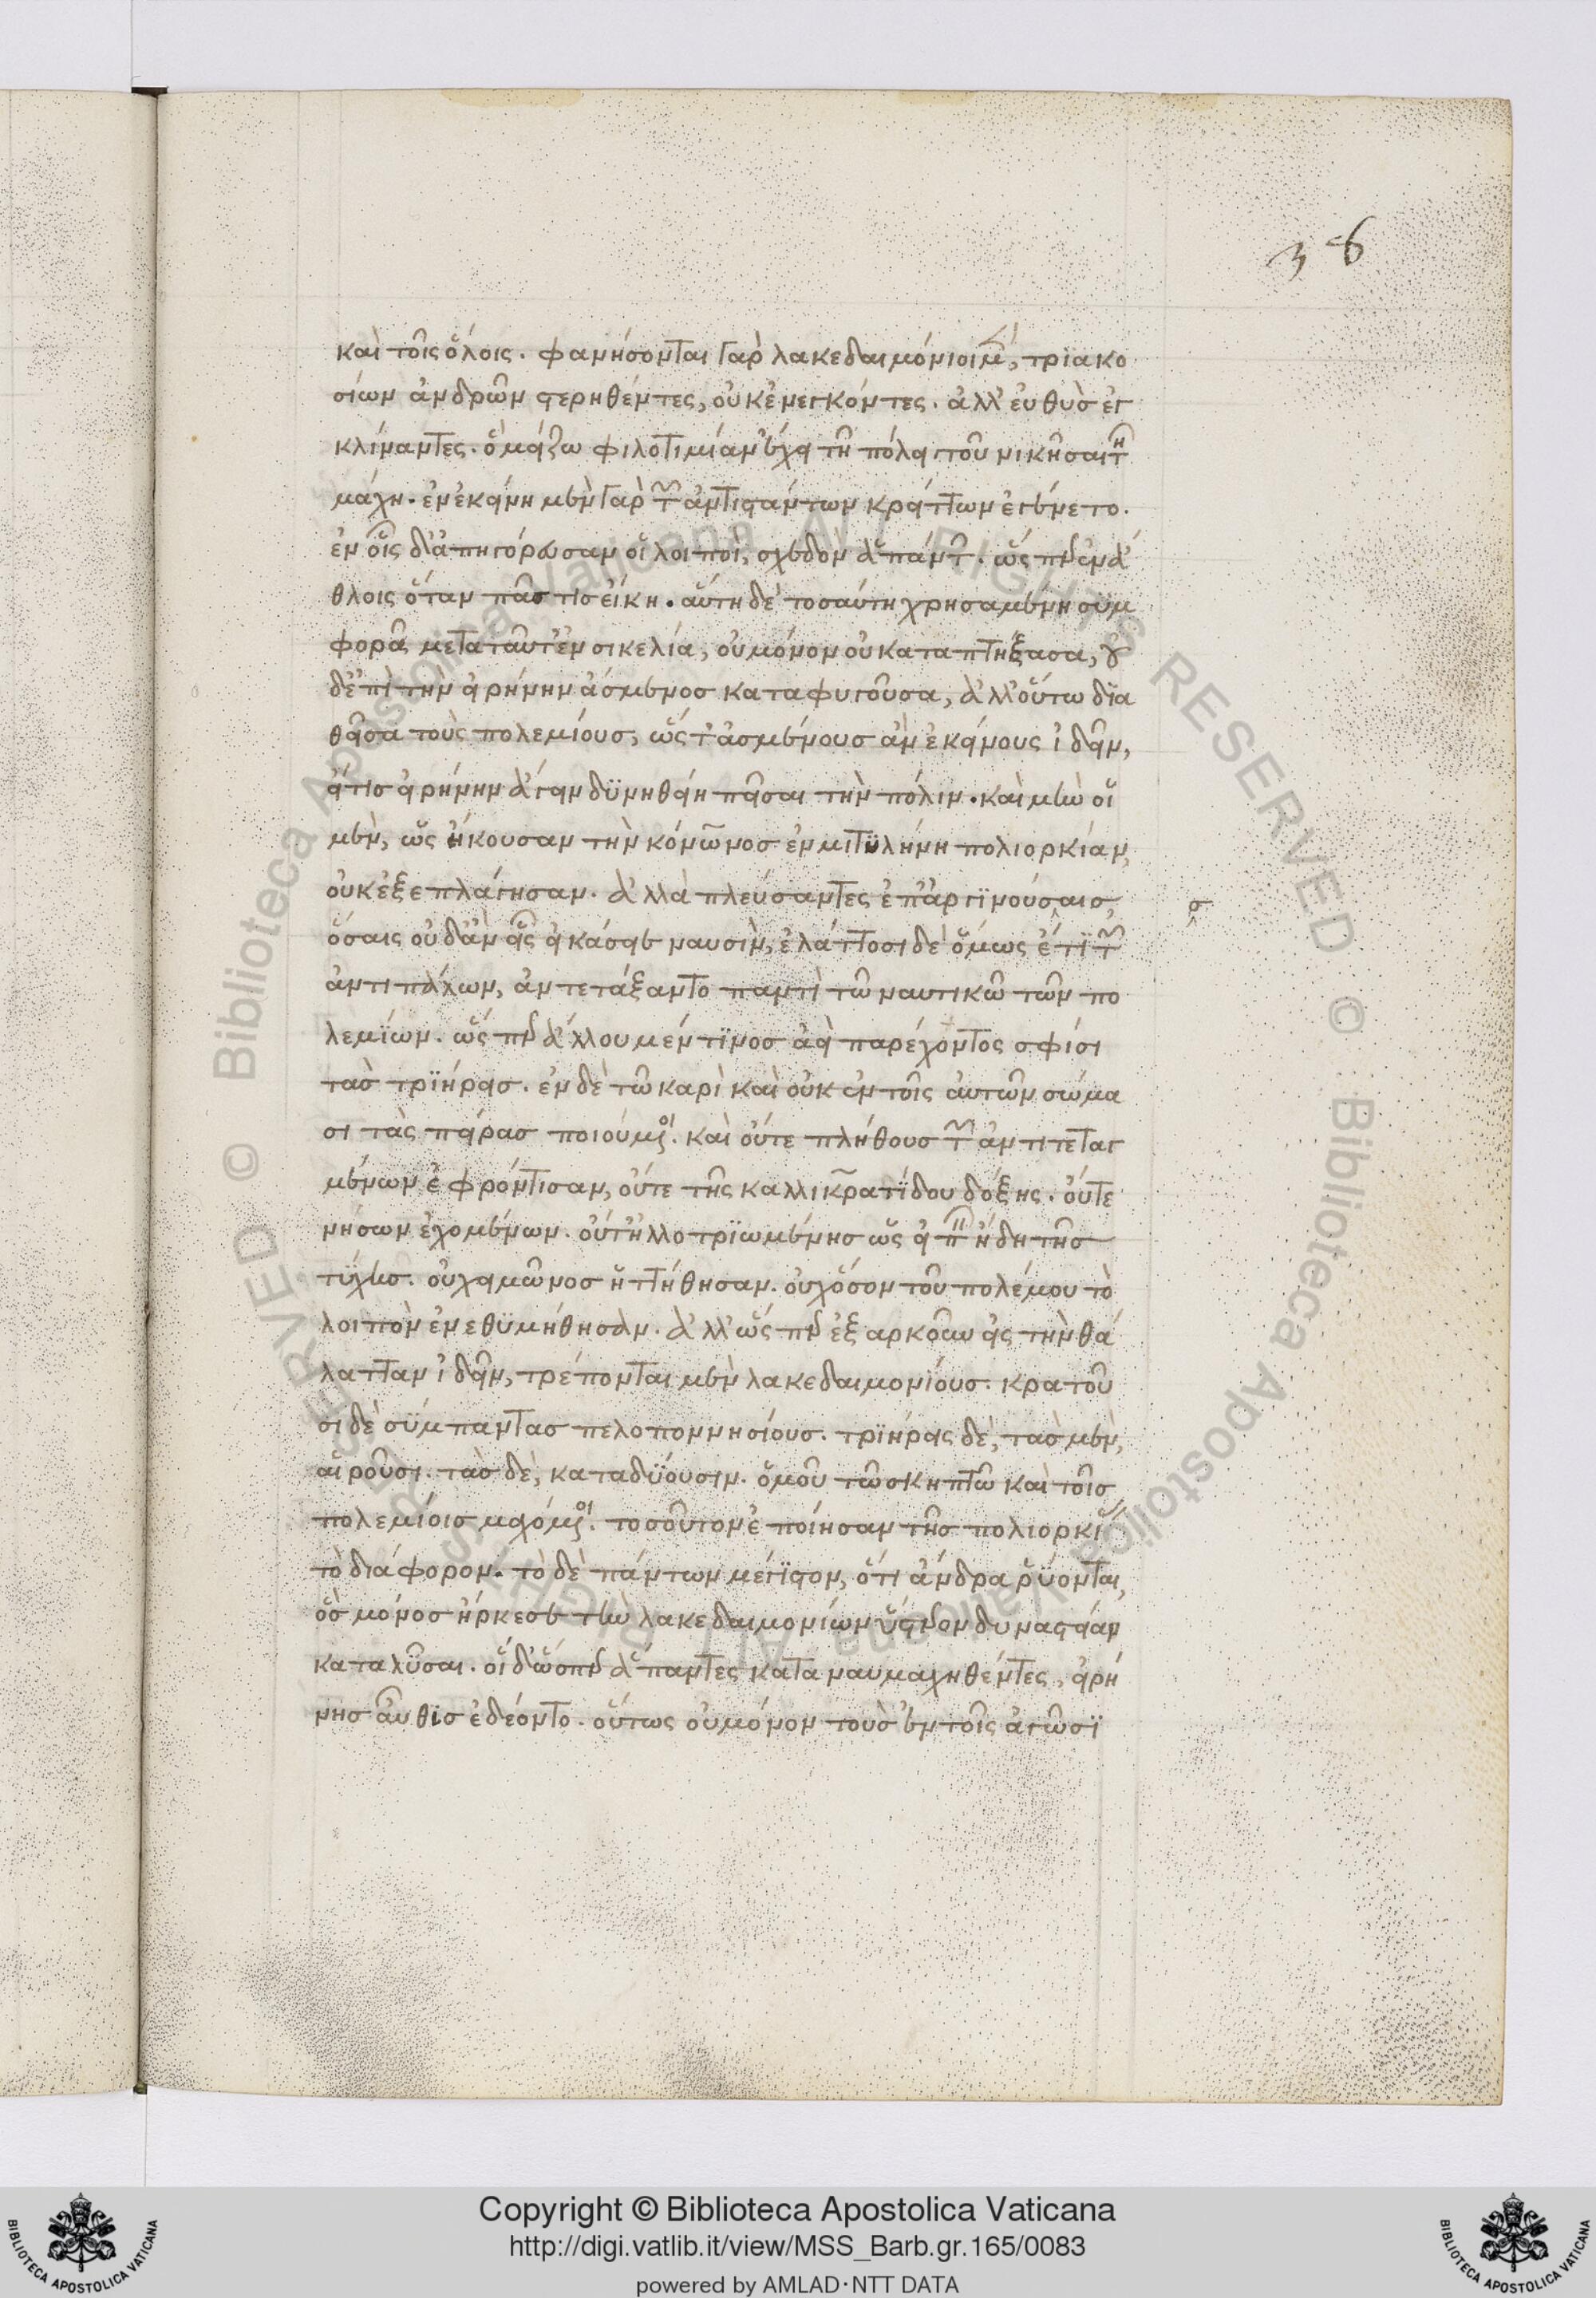 38
καὶ τοῖς ὅλοις. φανήσονται γὰρ λακεδαιμόνιοι μ̅, τριακο
σίων ἀνδρῶν στερηθέντες, οὐκ ἐνεγκόντες. ἀλλ' εὐθὺς ἐγ
κλίναντες. ὃ μείζω φιλοτιμίαν ἔχει τῆ πόλει τοῦ νικῆσαι τῆ
μάχη. ἐν ἐκείνη μὲν γὰρ τῶν ἀντιστάντων κρείττων ἐγένετο.
ἐν οἷς δ' ἀπηγόρευσαν οἱ λοιποὶ, σχεδὸν ἁπάντων. ὥσπερ ἐν ἄ
θλοις ὅταν πᾶς τις εἴκη. αὕτη δὲ τοσαύτη χρησαμένη συμ
φορᾶ μετὰ ταῦτ' ἐν σικελία, οὐ μόνον οὐ καταπτήξασα, οὐ
δ' ἐπὶ τὴν εἰρήνην ἄσμενος καταφυγοῦσα, ἀλλ' οὕτω δια
θεῖσα τοὺς πολεμίους, ὥστ' ἀσμένους ἂν ἐκείνους ἰδεῖν,
εἴ τις εἰρήνην ἄγειν δυνηθείη πεῖσαι τὴν πόλιν. καὶ μὴν οἱ
μὲν, ὡς ἤκουσαν τὴν κόνωνος ἐν μιτυλήνη πολιορκίαν,
οὐκ ἐξεπλάγησαν. ἀλλὰ πλεύσαντες ἐπ' ἀργινούσαις,
σ
ὅσαις οὐδ' ἂν εἷς εἰκάσαι ναυσὶν, ἐλάττοσι δὲ ὅμως ἔτι τῶν
ἀντιπάλων, ἀντετάξαντο παντὶ τῶ ναυτικῶ τῶν πο
λεμίων. ὥσπερ ἄλλου μέν τινος ἀεὶ παρέχοντος σφίσι
τὰς τριήρεις. ἐν δὲ τῶ καρὶ καὶ οὐκ ἐν τοῖς αὐτῶν σώμα
σι τὰς πείρας ποιούμενοι. καὶ οὔτε πλήθους τῶν ἀντιτεταγ
μένων ἐφρόντισαν, οὔτε τῆς καλλικρατίδου δόξης. οὔτε
νήσων ἐχομένων. οὔτ' ἠλλοτριωμένης ὡς εἰπεῖν ἤδη τῆς
τύχης. οὐ χειμῶνος ἡττήθησαν. οὐχ ὅσον τοῦ πολέμου τὸ
λοιπὸν ἐνεθυμήθησαν. ἀλλ' ὥσπερ ἐξαρκοῦν εἰς τὴν θά
λατταν ἰδεῖν, τρέπονται μὲν λακεδαιμονίους. κρατοῦ
σι δὲ σύμπαντας πελοποννησίους. τριήρεις δὲ, τὰς μὲν,
αἱροῦσι. τὰς δὲ, καταδύουσιν. ὁμοῦ τῶ σκηπτῶ καὶ τοῖς
πολεμίοις μαχόμενοι. τοσοῦτον ἐποίησαν τῆς πολιορκίας
τὸ διάφορον. τὸ δὲ πάντων μέγιστον, ὅτι ἄνδρα ῥύονται,
ὃς μόνος ἤρκεσε τὴν λακεδαιμονίων ὕστερον δυναστείαν
καταλῦσαι. οἱ δ' ὥσπερ ἅπαντες καταναυμαχηθέντες, εἰρή
νης αὖθις ἐδέοντο. οὕτως οὐ μόνον τοὺς ἐν τοῖς ἀγῶσι
Copyright © Biblioteca Apostolica Vaticana
http://digi.vatlib.it/view/MSS_Barb.gr.165/0083
powered by AMLAD·NTT DATA